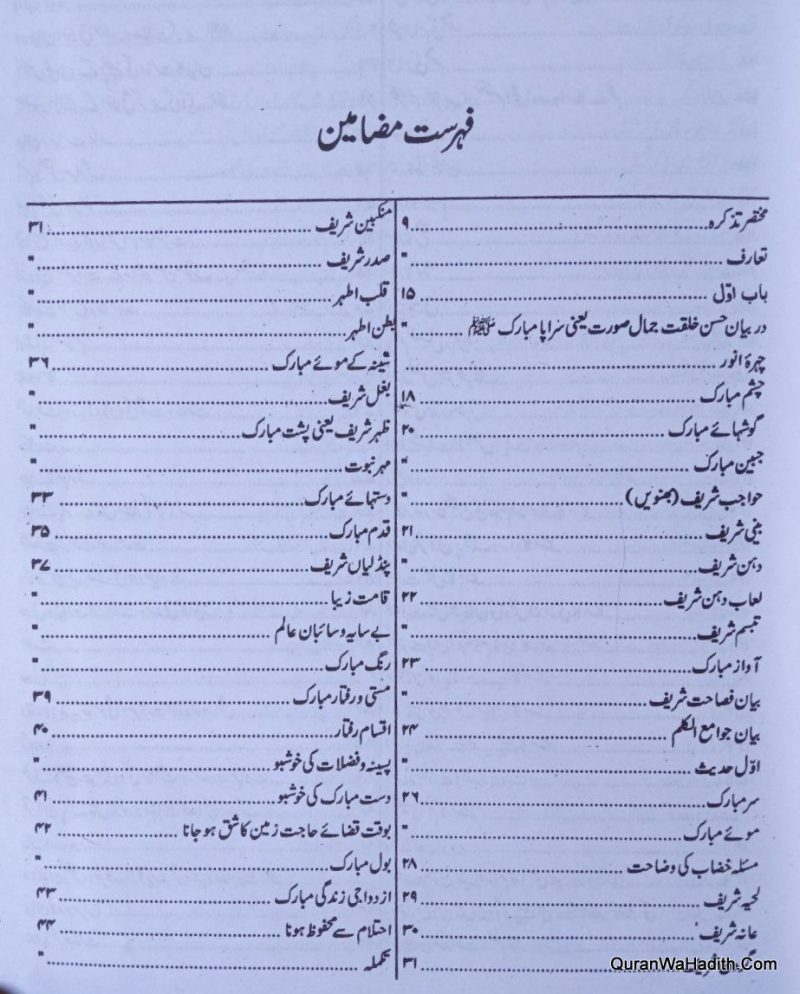 فہرست مضامین
مختصر تذکرہ ۹
تعارف "
باب اوّل ۱۵
در بیان حسن خلقت جمال صورت یعنی سراپا مبارک ﷺ "
چہرۂ انور "
چشم مبارک ۱۸
گوشہائے مبارک ۲۰
جبین مبارک "
حواجب شریف (بھنویں) "
بینی شریف ۲۱
دہن شریف "
لعاب دہن شریف ۲۲
تبسم شریف "
آواز مبارک ۲۳
بیان فصاحت شریف "
بیان جوامع الکلم ۲۴
اوّل حدیث "
سر مبارک ۲۶
موئے مبارک "
مسئلہ خضاب کی وضاحت ۲۸
لحیہ شریف ۲۹
عانہ شریف ۳۰
۳۱
منکبین شریف ۳۱
صدر شریف "
قلب اطہر "
بطن اطہر "
شینہ کے موئے مبارک ۳۶
بغل شریف "
ظہر شریف یعنی پشت مبارک "
مہر نبوت "
دستہائے مبارک ۳۳
قدم مبارک ۳۵
پنڈلیاں شریف ۳۷
قامت زیبا "
بے سایہ و سائبان عالم "
رنگ مبارک "
مستی و رفتار مبارک ۳۹
اقسام رفتار ۴۰
پسینہ و فضلات کی خوشبو "
دست مبارک کی خوشبو ۴۱
بوقت قضائے حاجت زمین کا شق ہو جانا ۴۲
بول مبارک "
ازدواجی زندگی مبارک ۴۳
احتلام سے محفوظ ہونا ۴۴
تکملہ "
QuranWaHadith.Com